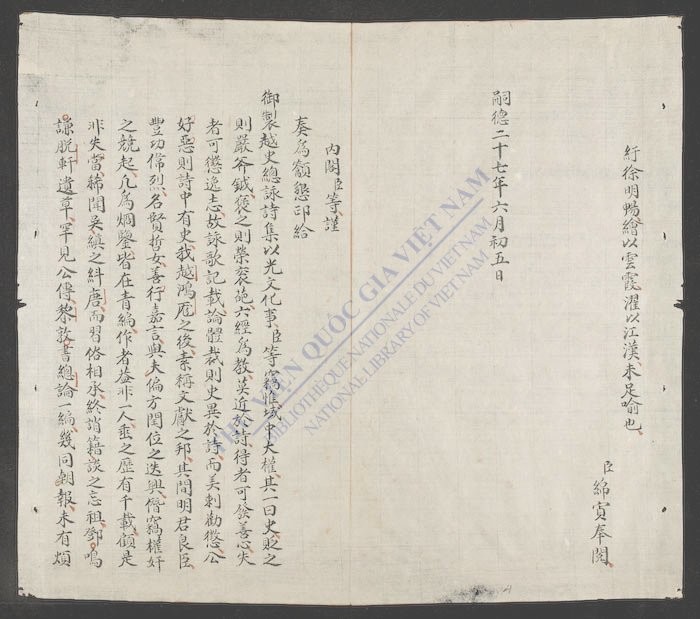 紆徐明暢繪以雲霞濯以江漢未足喻也
臣綿寊奉閱
嗣德二十七年六月初五日
內閣臣等謹
奏為籲懇印給
御製越史總詠詩集以光文化事臣等竊惟域中大權其一曰史貶之
則嚴斧鉞褒之則榮袞葩六經為教莫近於詩待者可發善心失
者可懲逸志故詠歌記載論體裁則史異於詩而美刺勸懲公
好惡則詩中有史我越鴻厖之後素稱文獻之邦其間明君良臣
豐功偉烈名賢哲女善行嘉言與夫偏方閏位之迭興僭竊權奸
之競起凡為烱鑒皆在青編作者益非一人垂之歷有千載顧是
非失當稀聞吳縝之糾唐而習俗相承終誚籍談之忘祖鄧鳴
謙脫軒遺草罕見公傳黎敦書總論一編幾同朝報未有煩
THƯ VIỆN QUỐC GIA VIỆT NAM
BIBLIOTHÈQUE NATIONALE DU VIETNAM
NATIONAL LIBRARY OF VIETNAM